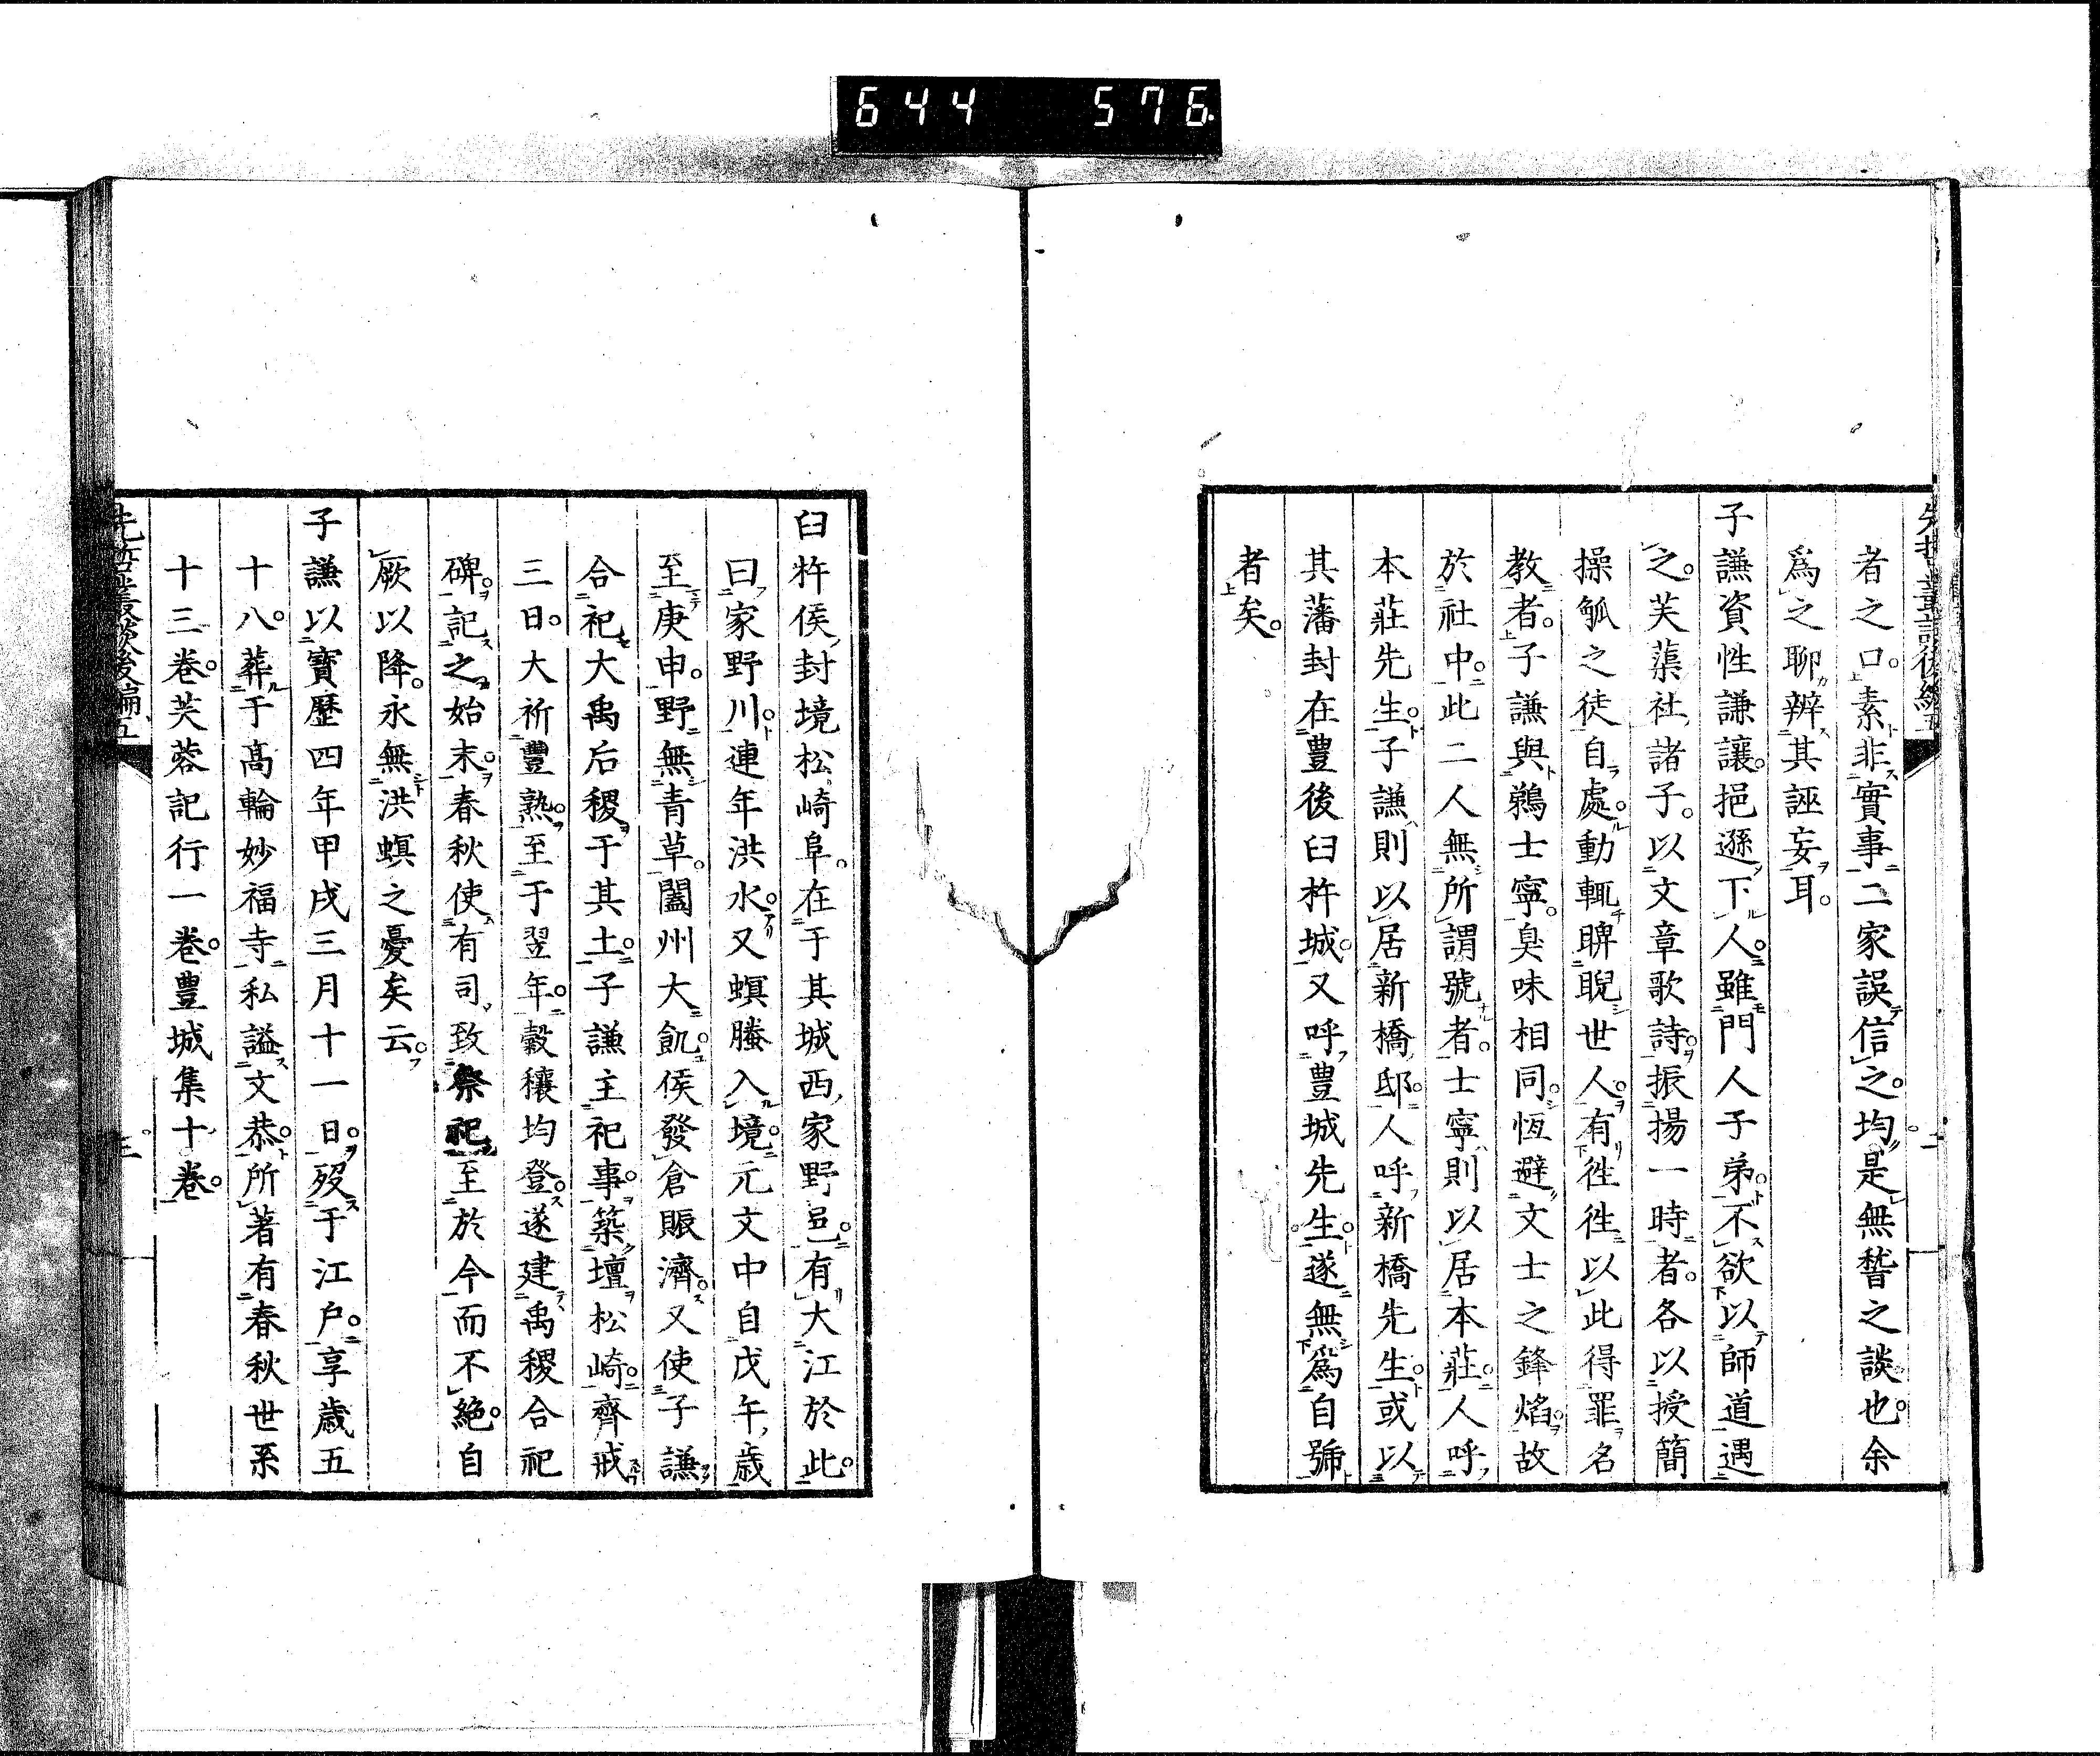 644 576
先哲叢談後編五
者之口素非實事二家誤信之均是無稽之談也余
爲之聊辨其誣妄耳
子謙資性謙讓挹遜下人雖門人子弟不欲以師道遇
之芙蕖社諸子以文章歌詩振揚一時者各以授簡
操觚之徒自處動輒睥睨世人有徃徃以此得罪名
教者子謙與鵜士寧臭味相同恆避文士之鋒焰故
於社中此二人無所謂號者士寧則以居本莊人呼
本莊先生子謙則以居新橋邸人呼新橋先生或以
其藩封在豊後臼杵城又呼豊城先生遂無爲自號
者矣
臼杵侯封境松崎阜在于其城西家野邑有大江於此
曰家野川連年洪水又螟螣入境元文中自戊午歳
至庚申野無青草闔州大飢侯發倉賑濟又使子謙
合祀大禹后稷于其土子謙主祀事築壇松崎齊戒
三日大祈豐熟至于翌年穀穰均登遂建禹稷合祀
碑記之始末春秋使有司致祭祀至於今而不絶自
厥以降永無洪螟之憂矣云
子謙以寶歷四年甲戌三月十一日歿于江戸享歳五
十八葬于高輪妙福寺私謚文恭所著有春秋世系
十三卷芙蓉記行一卷豊城集十卷
先哲叢談後編五